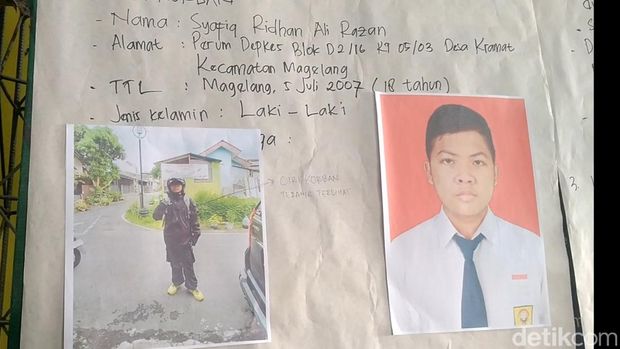 - Nama : Syafiq Ridhan Ali Razan
- Alamat : Perum Depkes Blok D2/16 RT 05/03 Desa Kramat
Kecamatan Magelang
- TTL : Magelang, 5 Juli 2007 (18 tahun)
- Jenis kelamin : Laki - Laki
ga :
CIRI KORBAN
TERAKHIR TERLIHAT
3.
detikcom